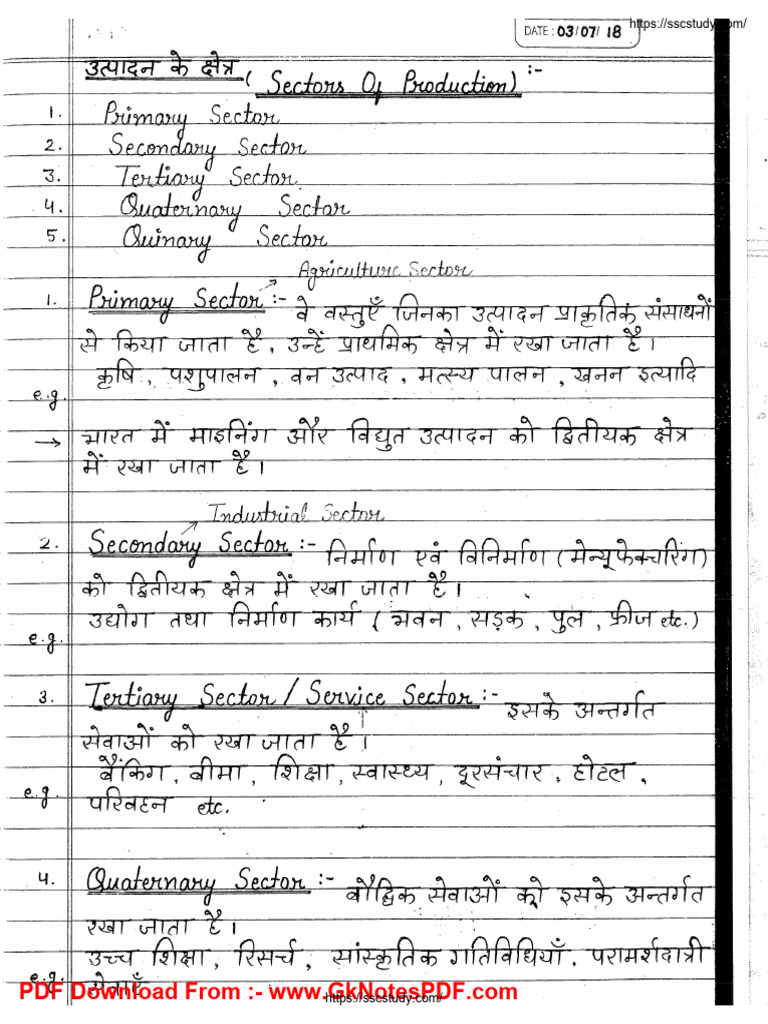 https://sscstudy.com/
DATE: 03/07/18
उत्पादन के क्षेत्र (Sectors Of Production) :-
1. Primary Sector
2. Secondary Sector
3. Tertiary Sector
4. Quaternary Sector
5. Quinary Sector
Agriculture Sector
1. Primary Sector :- वे वस्तुएँ जिनका उत्पादन प्राकृतिक संसाधनों
से किया जाता है, उन्हें प्राथमिक क्षेत्र में रखा जाता है।
e.g. कृषि, पशुपालन, वन उत्पाद, मत्स्य पालन, खनन इत्यादि
→ भारत में माइनिंग और विद्युत उत्पादन को द्वितीयक क्षेत्र
में रखा जाता है।
Industrial Sector
2. Secondary Sector :- निर्माण एवं विनिर्माण (मेन्यूफेक्चरिंग)
को द्वितीयक क्षेत्र में रखा जाता है।
e.g. उद्योग तथा निर्माण कार्य (भवन, सड़क, पुल, फ्रीज etc.)
3. Tertiary Sector / Service Sector :- इसके अन्तर्गत
सेवाओं को रखा जाता है।
e.g. बैंकिंग, बीमा, शिक्षा, स्वास्थ्य, दूरसंचार, होटल,
परिवहन etc.
4. Quaternary Sector :- बौद्धिक सेवाओं को इसके अन्तर्गत
रखा जाता है।
e.g. उच्च शिक्षा, रिसर्च, सांस्कृतिक गतिविधियाँ, परामर्शदात्री
सेवाएँ
PDF Download From :- www.GkNotesPDF.com
https://sscstudy.com/